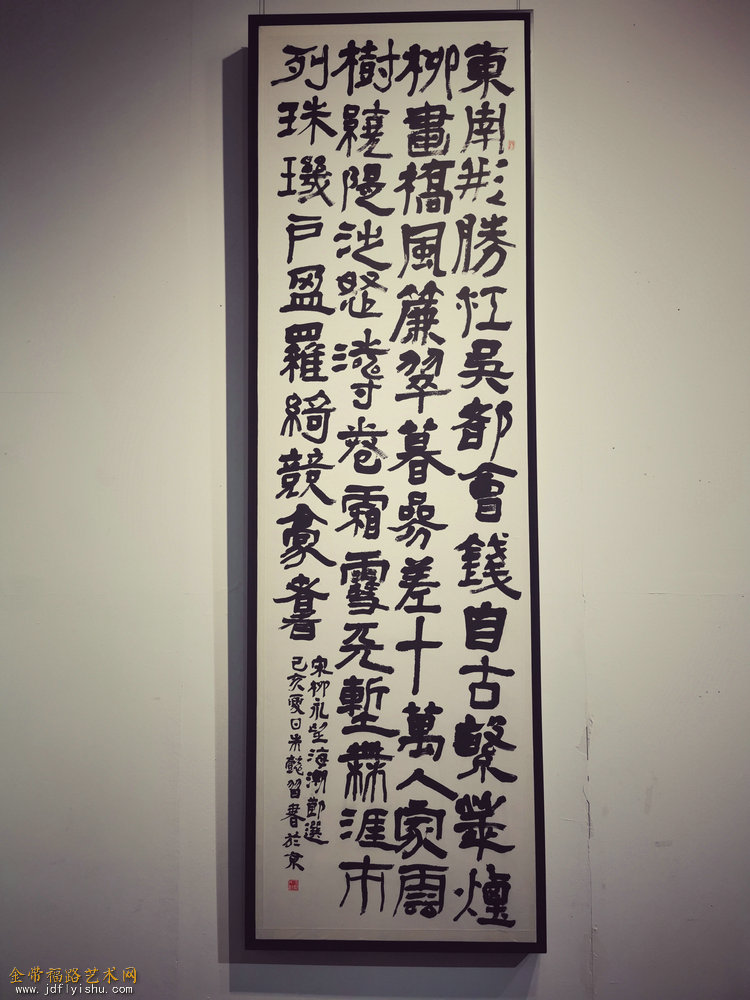 東南形勝江吳都會錢自古繁華煙
柳畫橋風簾翠暮參差十萬人家雲
樹繞隄沙怒濤卷霜雪天塹無涯市
列珠璣戶盈羅綺競豪奢
宋柳永望海潮節選
己亥夏日朱懿習書於京
金带福路艺术网
www.jdflyishu.com